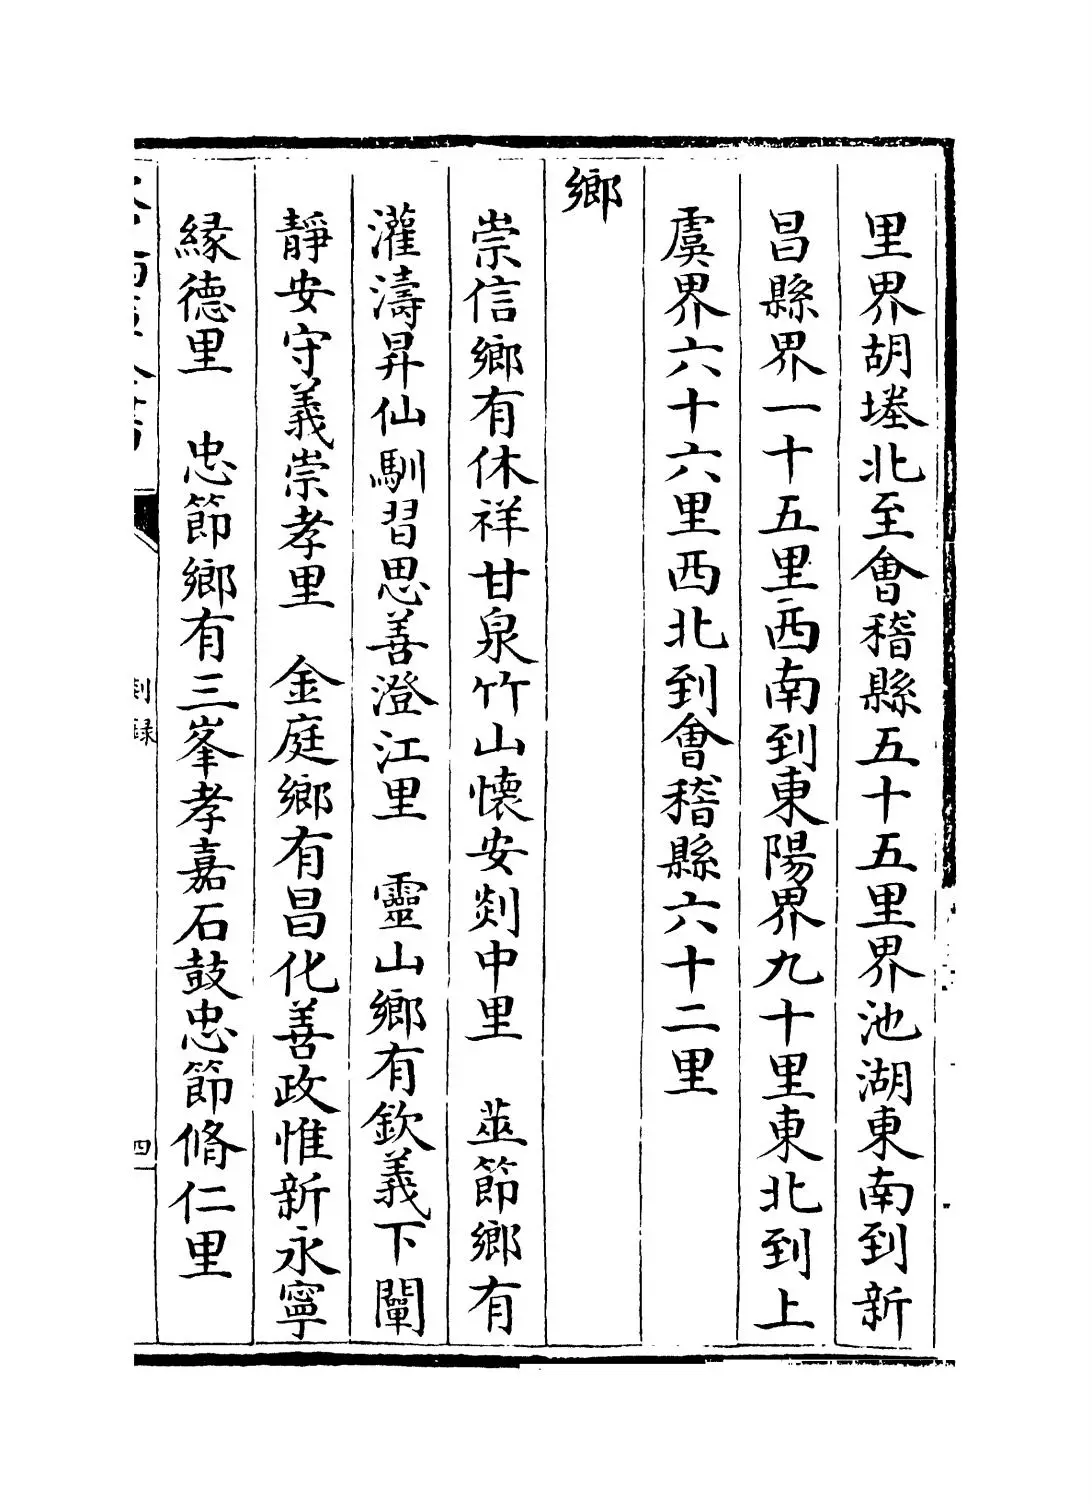 里界胡墭北至會稽縣五十五里界池湖東南到新
昌縣界一十五里西南到東陽界九十里東北到上
虞界六十六里西北到會稽縣六十二里
鄉
崇信鄉有休祥甘泉竹山懷安剡中里　莁節鄉有
灌濤昇仙馴習思善澄江里　靈山鄉有欽義下闈
靜安守義崇孝里　金庭鄉有昌化善政惟新永寧
緣德里　忠節鄉有三峯孝嘉石鼓忠節脩仁里
剡録
四